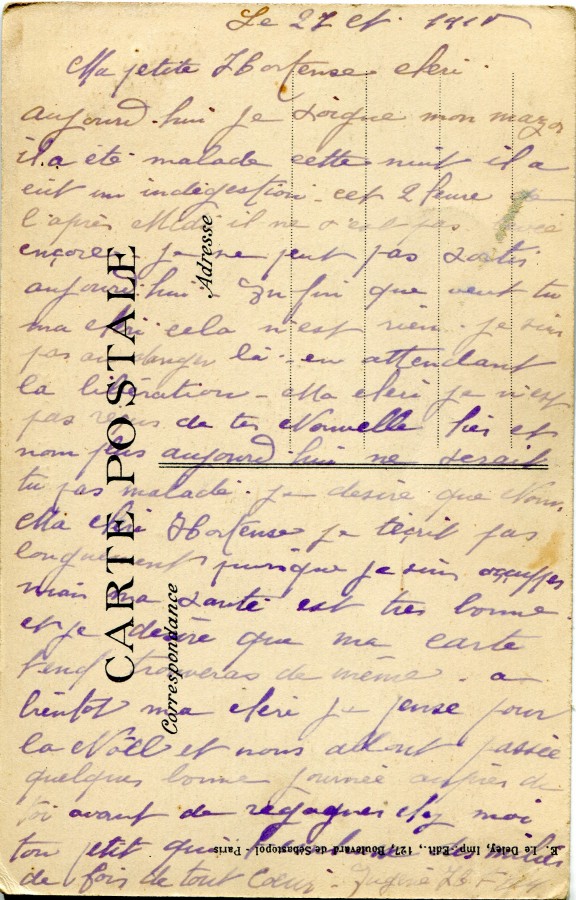 Le 27
Ma petite Hortense cheri
aujourd'hui je soigne mon major
il a eté malade cette nuit il a
eut un indegestion cet 2 heure de
l'après Midi il ne s'est pas levée
encore je ne peut pas sortir
aujourd'hui. Enfin que veut tu
ma cheri cela n'est rien. je suis
pas au danger là en attendant
la libération - Ma cheri je n'est
pas reçus de tes Nouvelle hier et
nom plus aujourd'hui ne serait
tu pas malade. je desire que Non
Ma cheri Hortense je t'ecrit pas
longuement puisque je suis occupper
mais ma santé est très bonne
et je désire que ma carte
t'en trouveras de même. a
bientot ma cheri je pense pour
la Nöel et nous allont passée
quelques bonne journée auprès de
toi avant de regagner chez moi
ton petit qui des milier
de fois de tout Coeur.
CARTE POSTALE
Correspondance
Adresse
E. Le Deley, Imp.-Edit., 127, Boulevard de Sébastopol - Paris